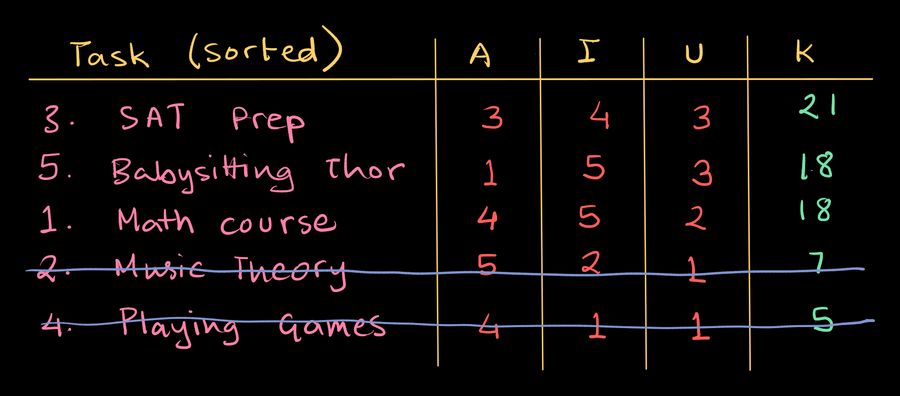 Task (sorted) A I U K
3. SAT Prep 3 4 3 21
5. Babysitting Thor 1 5 3 18
1. Math course 4 5 2 18
2. Music Theory 5 2 1 7
4. Playing Games 4 1 1 5